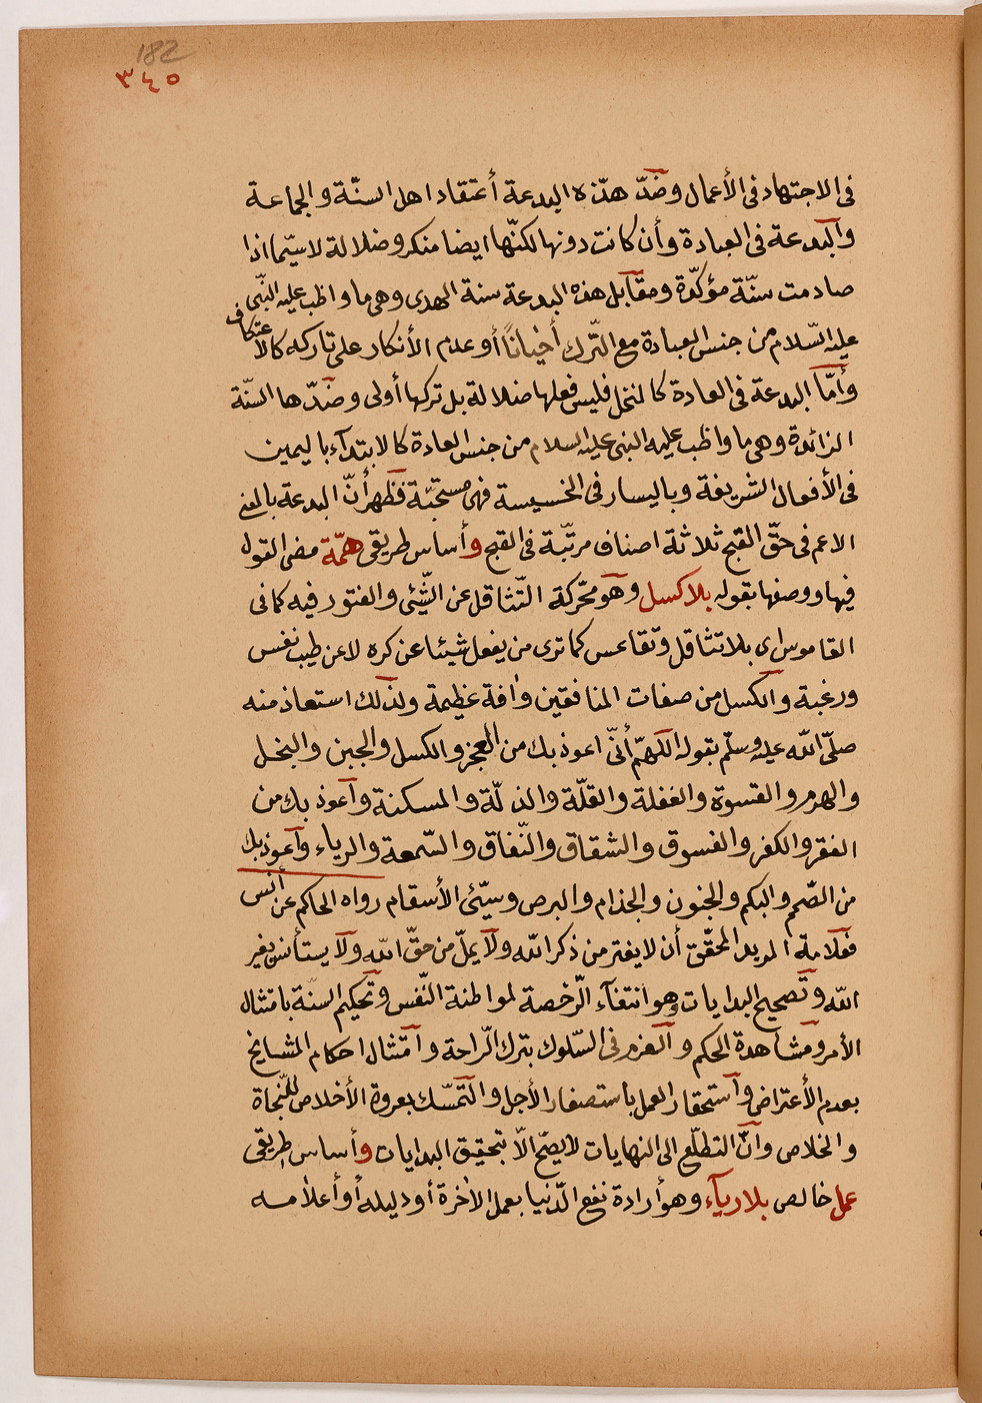 182
٣٤٥
فى الاجتهاد فى الأعمال وضدّ هذه البدعة أعتقاد اهل السنّة والجماعة
والبدعة فى العبادة وأن كانت دونها لكنّها ايضا منكر وضلالة لاسيّما اذا
صادمت سنّة مؤكّدة ومقابل هذه البدعة سنة الهدى وهى ما واظب عليه النّبى
عليه السّلام من جنس العبادة مع التّرك أحيانًا أو عدم الأنكار على تاركه كالاعتكاف
وأمّا البدعة فى العادة كالنخل فليس فعلها ضلالة بل تركها أولى وضدّها السنّة
الزائدة وهى ما واظب عليه النبى عليه السلام من جنس العادة كالابتدآء باليمين
فى الأفعال الشريفة وباليسار فى الخسيسة فهى مستحبّة فظهر أنّ البدعة بالمعنى
الاعم فى حقّ القبح ثلاثة اصناف مرتّبة فى القبح وأساس طريقى همّة مضى القول
فيها ووصفها بقوله بلا كسل وهو محرّكة التّثاقل عن الشّئى والفتور فيه كما فى
القاموس اى بلا تثاقل وتقاعس كما ترى من يفعل شيئا عن كره لا عن طيب نفس
ورغبة والكسل من صفات المنافقين وافة عظيمة ولذلك استعاذ منه
صلّى الله عليه وسلّم بقوله اللّهمّ أنّى اعوذ بك من العجز والكسل والجبن والبخل
والهرم والقسوة والغفلة والقلّة والذلّة والمسكنة وآعوذ بك من
الفقر والكفر والفسوق والشقاق والنّفاق والسّمعة والرياء وآعوذ بك
من الصّمم والبكم والجنون والجذام والبرص وسيّئى الأسقام رواه الحاكم عن أنس
فعلامة المريد المحقّق أن لا يفتر من ذكر الله ولا يملّ من حقّ الله ولا يستأنس بغير
الله وتصحيح البدايات وهو انتفآء الرّخصة لمواطنة النّفس وتحكيم السنّة بامتثال
الأمر ومشاهدة الحكم والعزم فى السّلوك بترك الرّاحة وامتثال احكام المشايخ
بعدم الأعتراض واستحقار العمل باستصغار الأجل والتمسّك بعروة الأخلاص للنّجاة
والخلاص وانّ التطلّع الى النهايات لا يصحّ الّا بتحقيق البدايات وأساس طريقى
عمل خالص بلا ريآء وهو أرادة نفع الدّنيا بعمل الاخرة أو دليله أو أعلامه